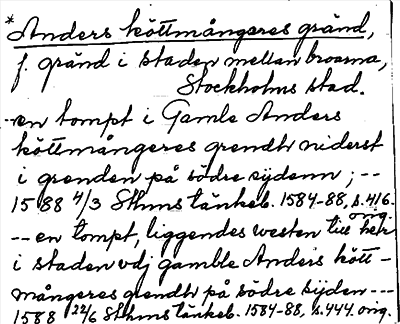 * Anders köttmångeres gränd,
f. gränd i staden mellan broarna,
Stockholms stad.
-en tompt i Gamle Anders
köttmångeres grendh niderst
i grenden på södre sijdenn; --
1588 4/3 Sthms tänkeb. 1584-88, s. 416.
orig.
-- en tompt, liggendes westen till
i staden vdj gamble Anders kött-
mångeres grendh på södre sijden ---
1588 22/6 Sthms tänkeb. 1584-88, s. 444. orig.